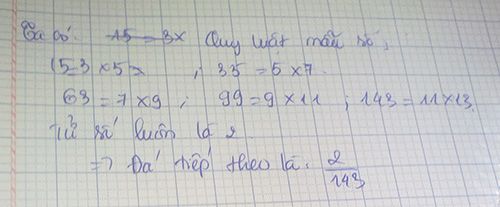 Ta có: 15 = 3x Quy luật mẫu số;
15=3 x5 ; 35 = 5 x7
63 = 7 x 9 ; 99 = 9 x 11 ; 143 = 11 x 13
Tử số luôn là 2.
=> Đá tiếp theo là: 2/143